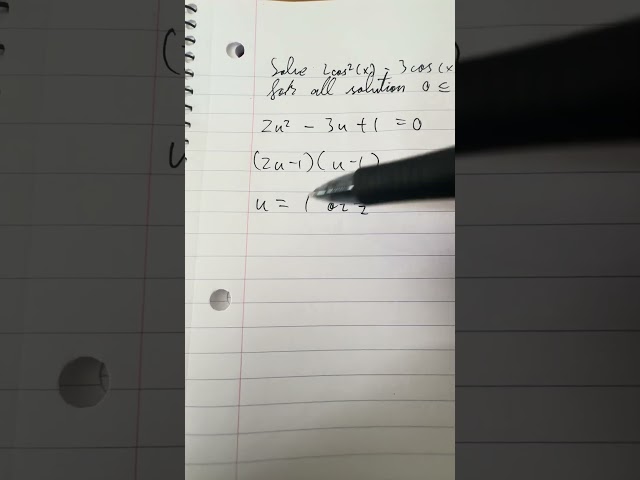 Solve 2cos²(x) - 3cos(x
for all solution 0 ≤
2u² - 3u + 1 = 0
(2u-1)(u-1)
u = 1 or